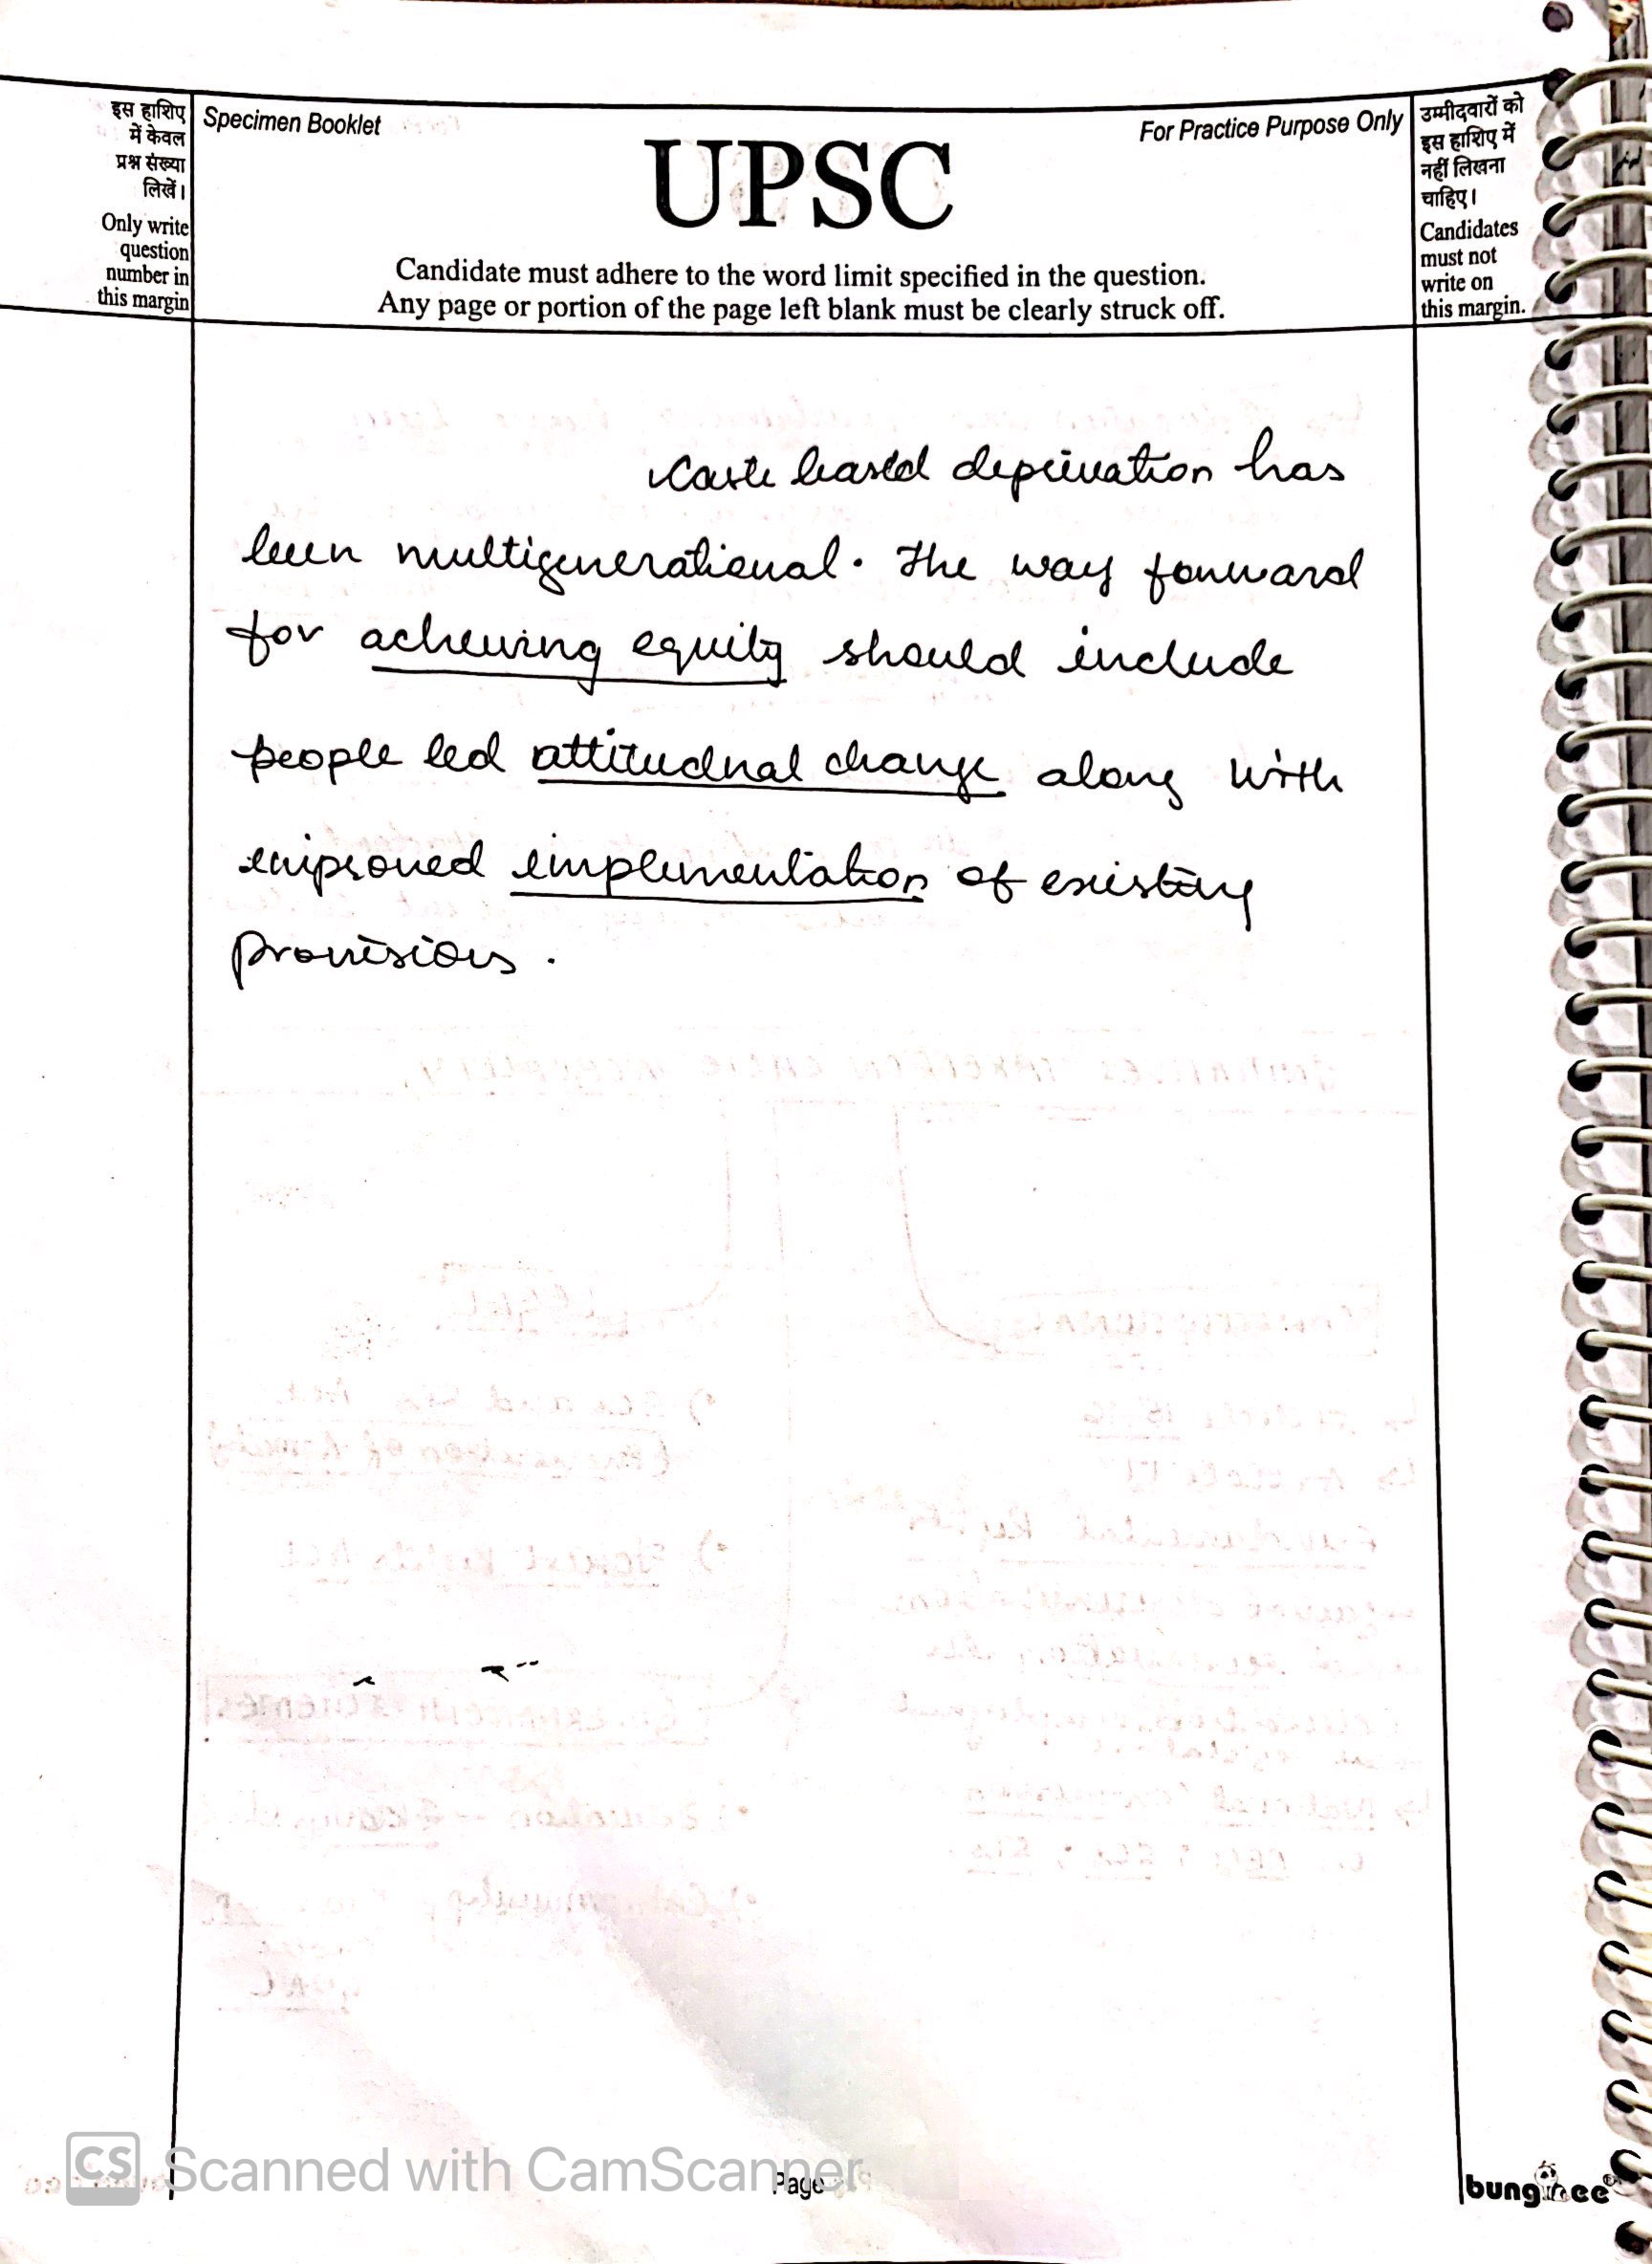 इस हाशिए
में केवल
प्रश्न संख्या
लिखें।
Only write
question
number in
this margin
Specimen Booklet
For Practice Purpose Only
UPSC
Candidate must adhere to the word limit specified in the question.
Any page or portion of the page left blank must be clearly struck off.
उम्मीदवारों को
इस हाशिए में
नहीं लिखना
चाहिए।
Candidates
must not
write on
this margin.
Caste based deprivation has
been multigenerational. The way forward
for acheiving equity should include
people led attitudnal change along with
improved implementation of existing
provisions.
CS Scanned with CamScanner
Page
bunghee